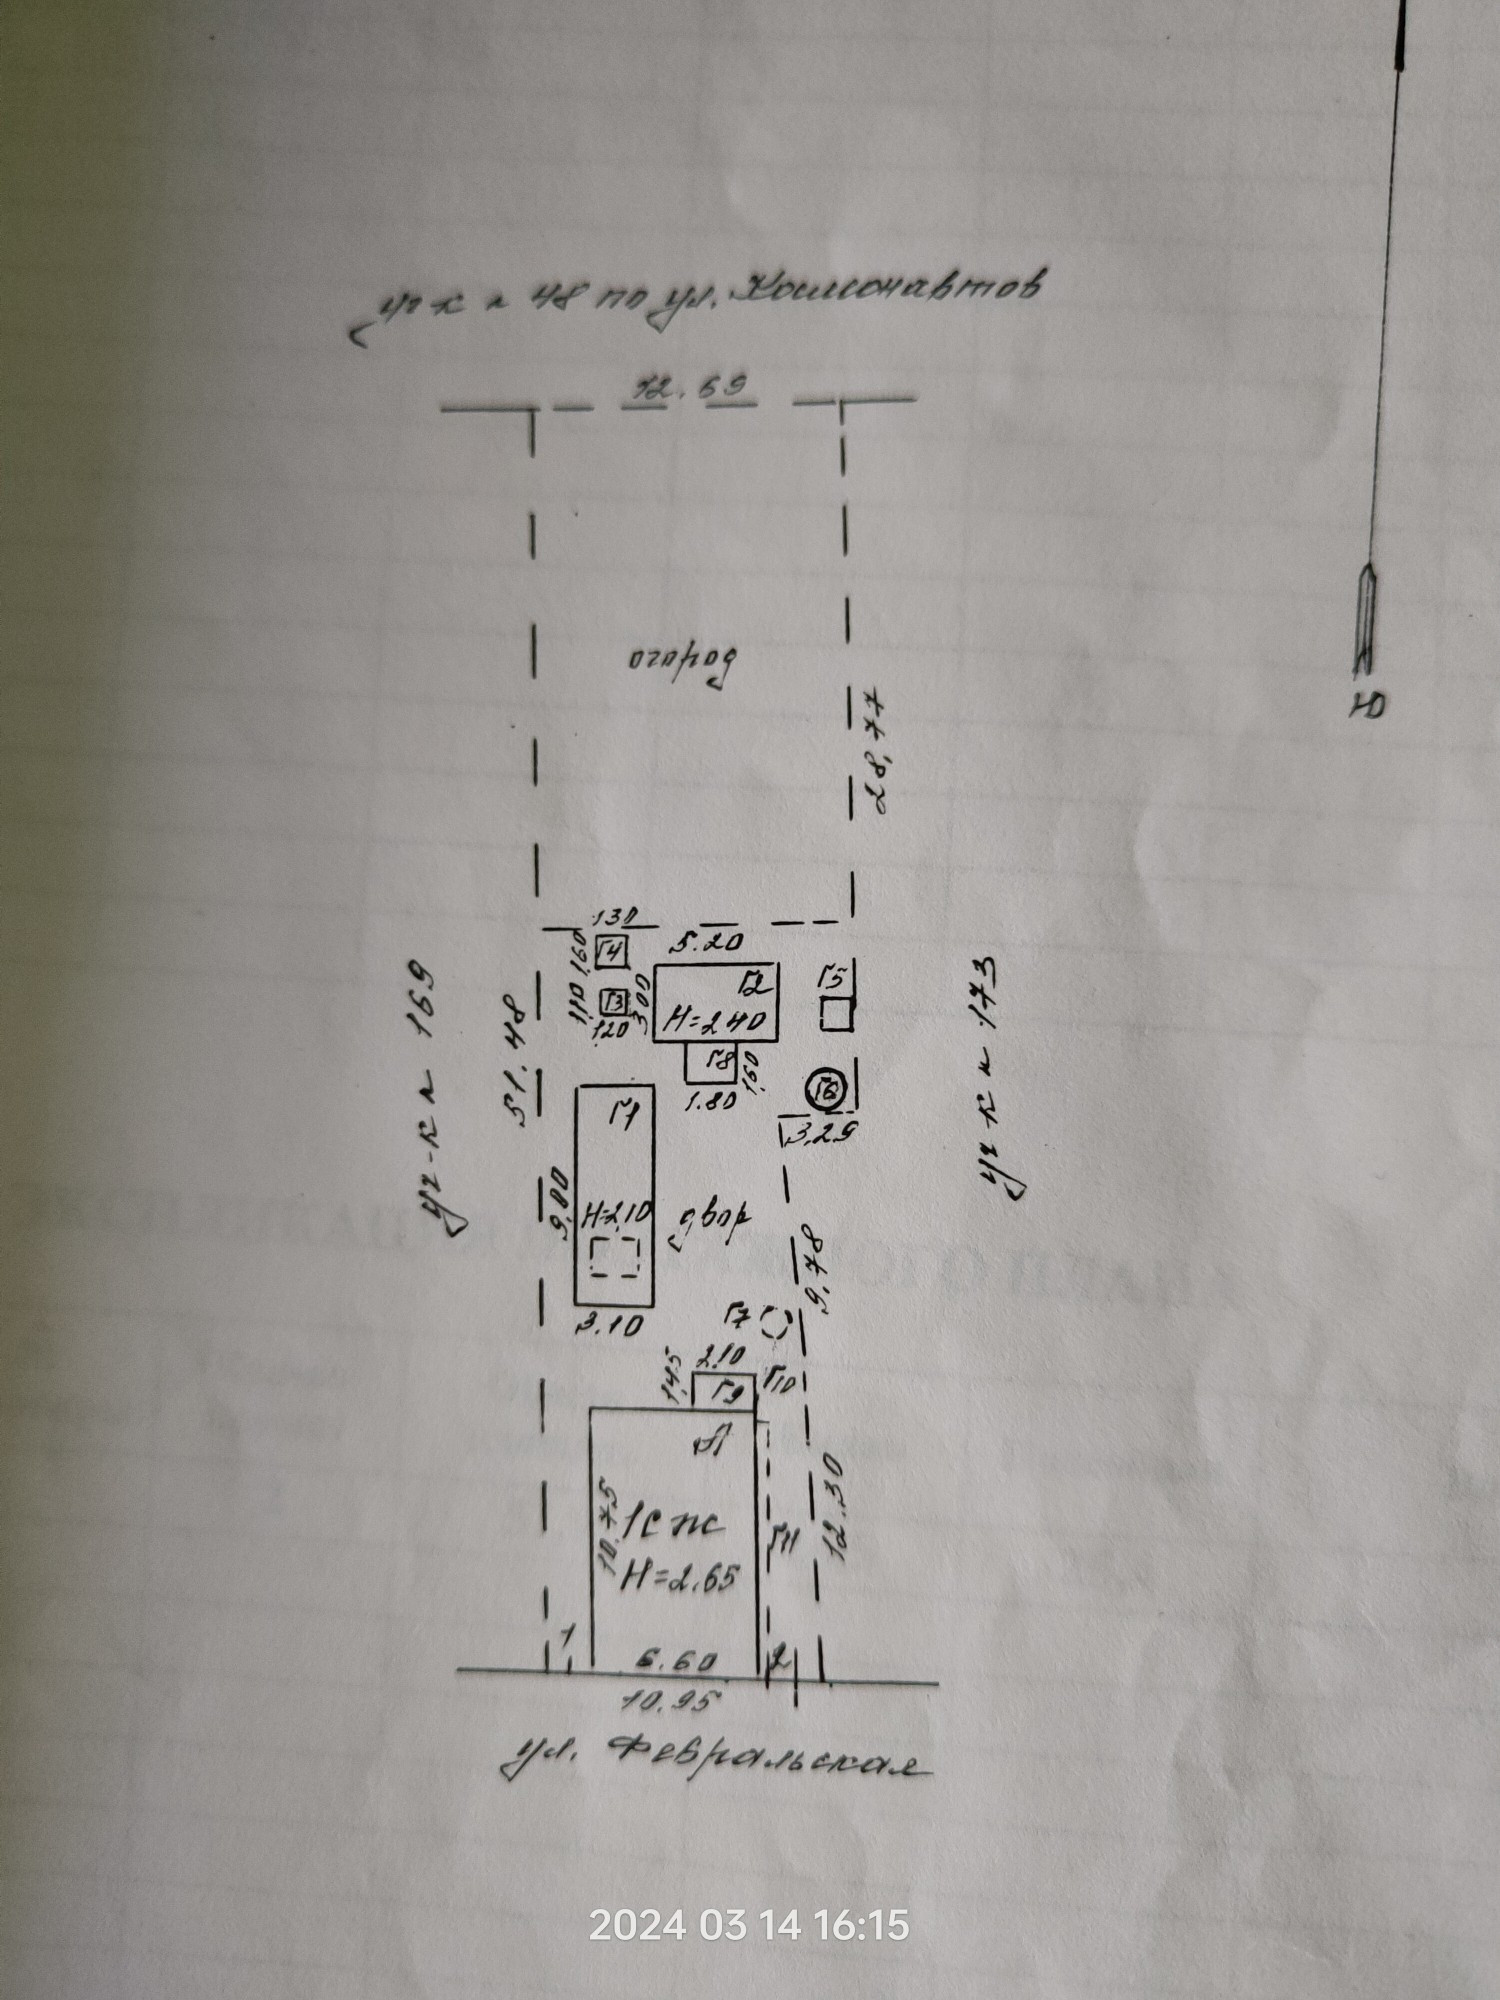 уч-к № 48 по ул. Космонавтов
12.69
огород
28,77
130
Г4
1,60
5.20
Г5
Г2
Н=2.40
3.00
Г3
1,10
1,20
уч-к № 169
51.48
уч-к № 173
Г8
1,60
1.80
Г6
3.29
Г1
9.00
Н=2,10
двор
9.78
3.10
Г7
2.10
1.45
Г9
Г10
А
10.75
1С Ж
Н=2.65
Г11
12.30
1
6.60
2
10.95
ул. Февральская
Ю
2024 03 14 16:15